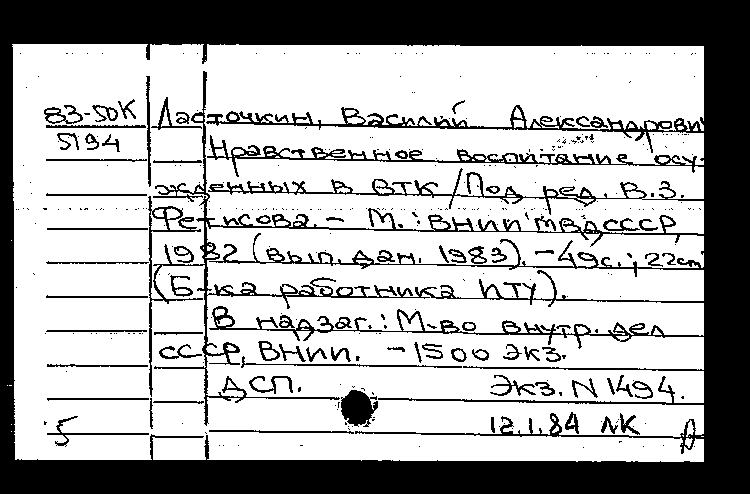 83-50К Ласточкин, Василий Александрович
5194 Нравственное воспитание осу-
жденных в ВТК / Под ред. В.З.
Фетисова. - М.: ВНИИ МВД СССР,
1982 (вып. дан. 1983). - 49с.; 22см
(Б-ка работника ИТУ).
В надзаг.: М-во внутр. дел
СССР, ВНИИ. - 1500 экз.
ДСП. Экз. N 1494.
5 12.1.84 ЛК